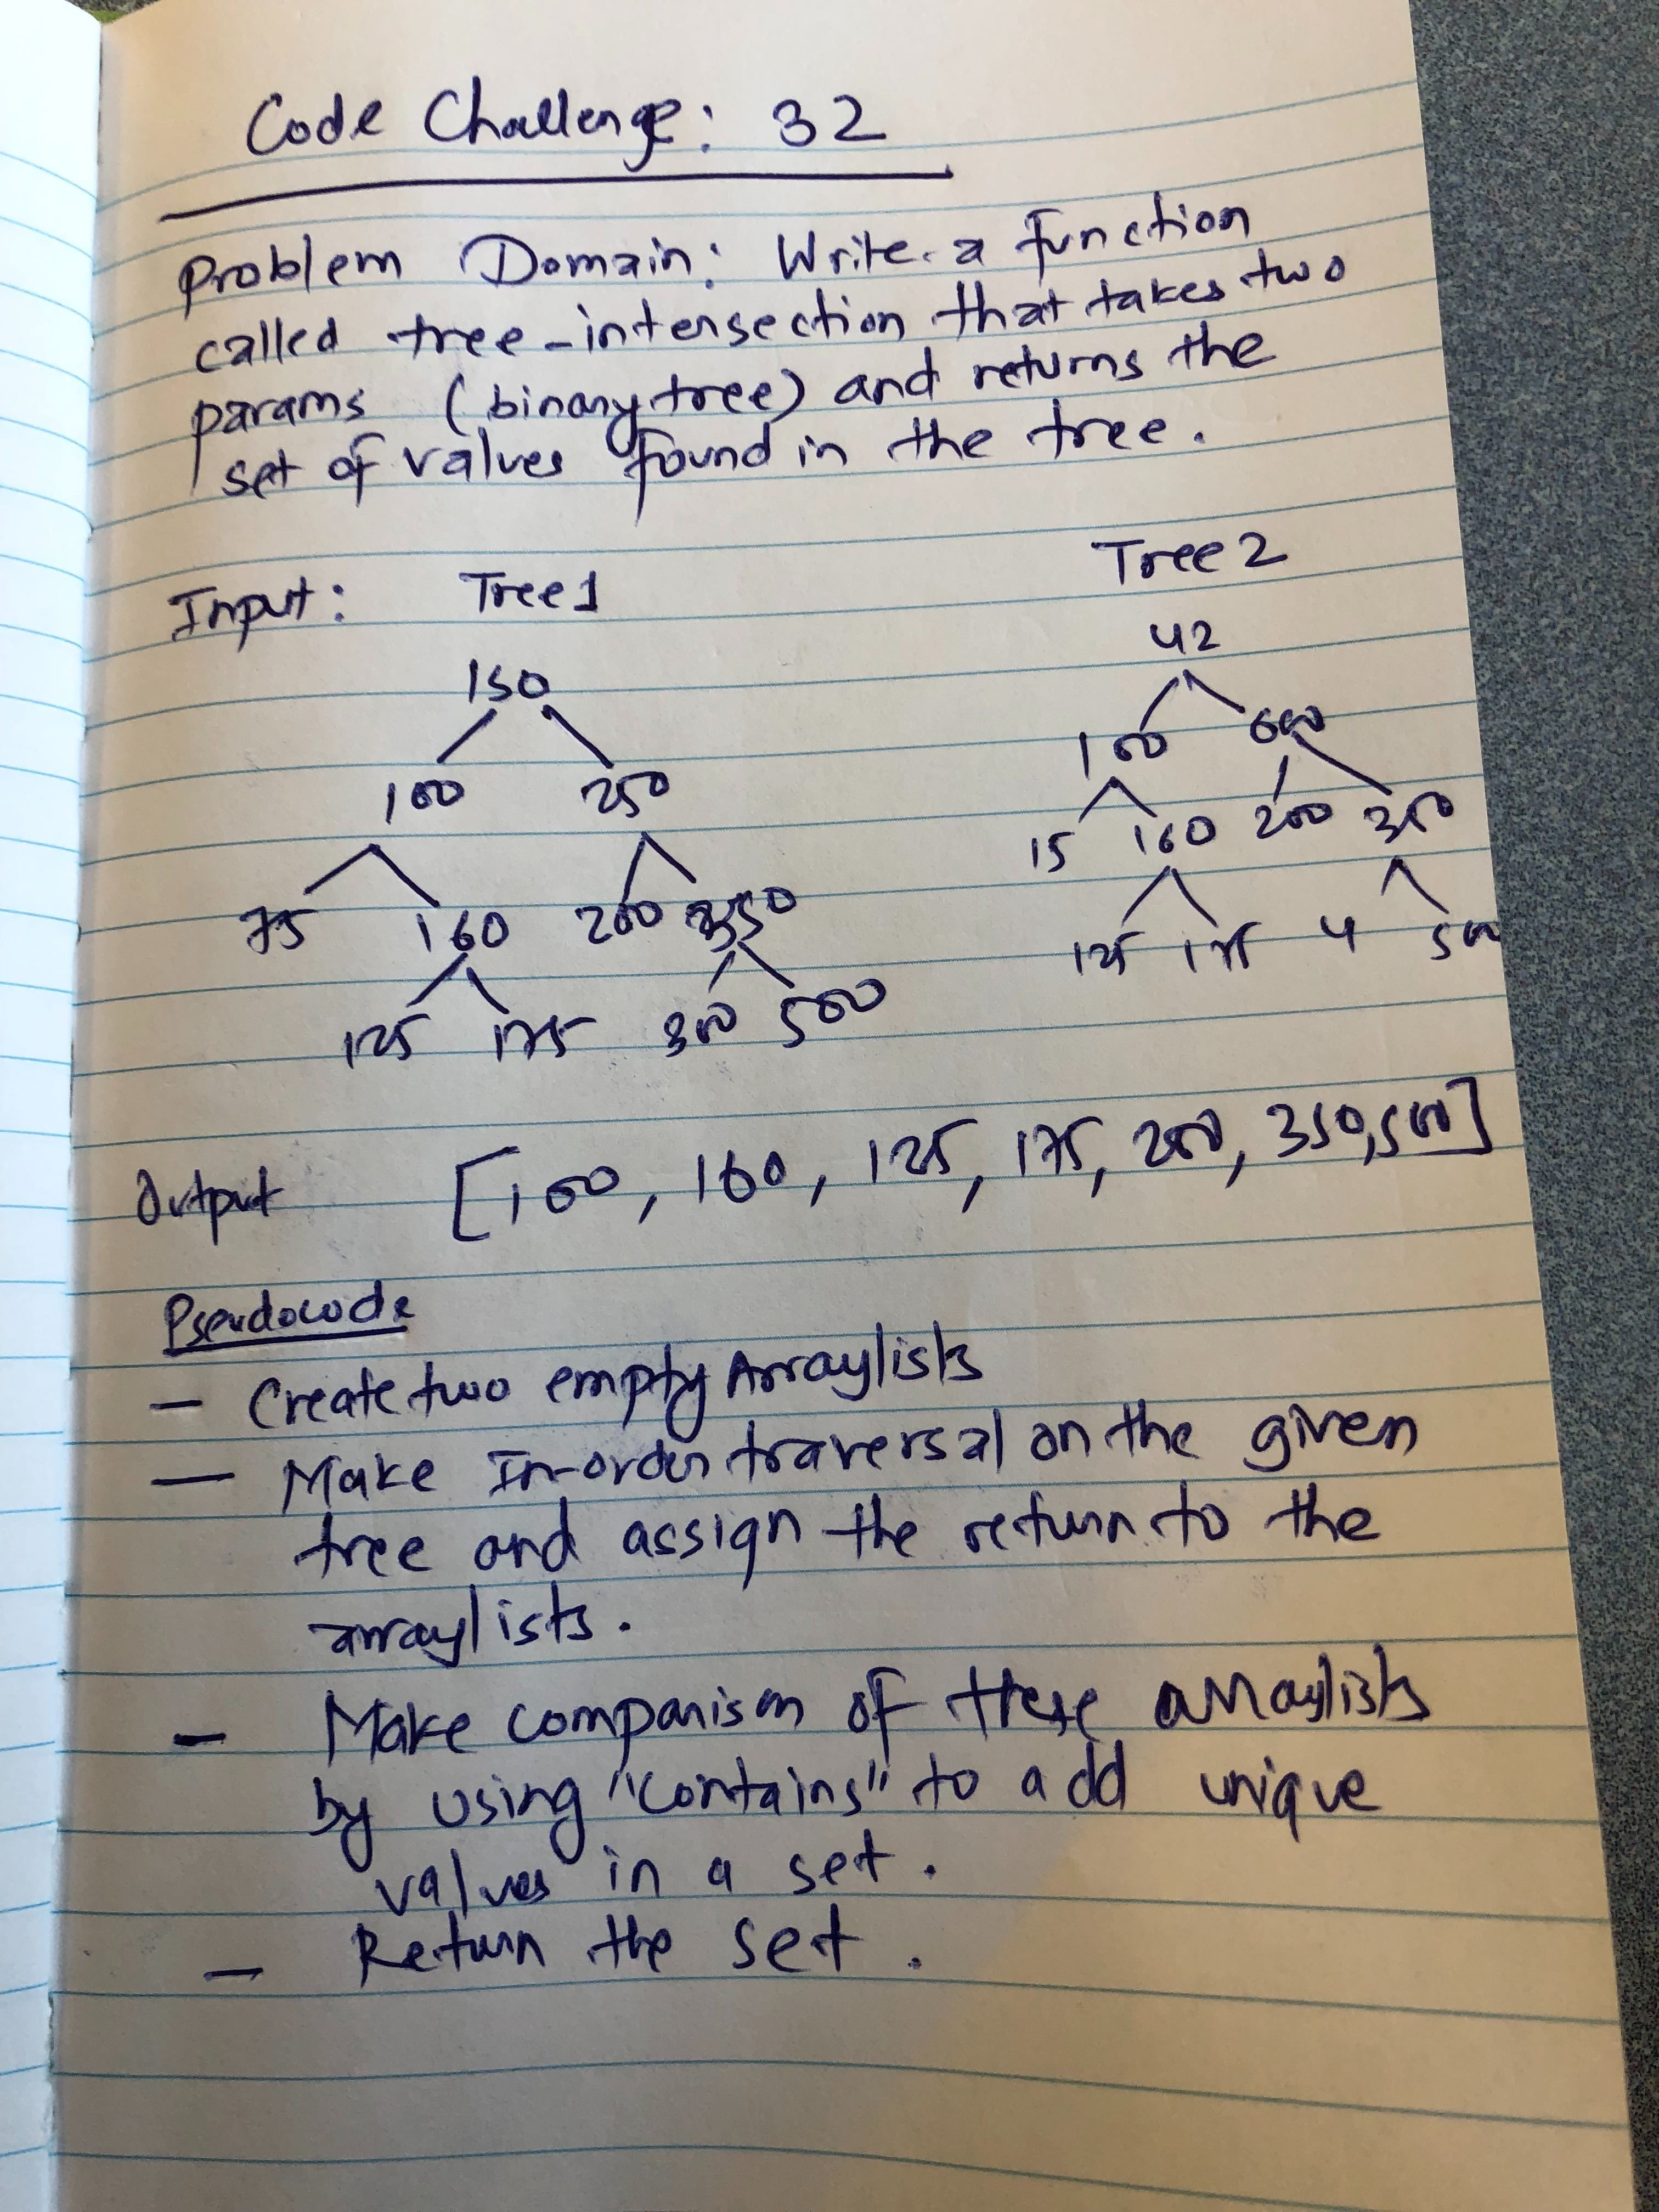 Code Challenge: 32
Problem Domain: Write a function
called tree-intersection that takes two
params (binary tree) and returns the
set of values found in the tree.
Input: Tree 1 Tree 2
150 42
100 250 100 600
75 160 200 350 15 160 200 350
125 175 300 500 125 175 4 500
Output [100, 160, 125, 175, 200, 350, 500]
Pseudocode
- Create two empty Arraylists
- Make In-order traversal on the given
tree and assign the return to the
arraylists.
- Make comparison of these arraylists
by using "contains" to add unique
values in a set.
- Return the set.